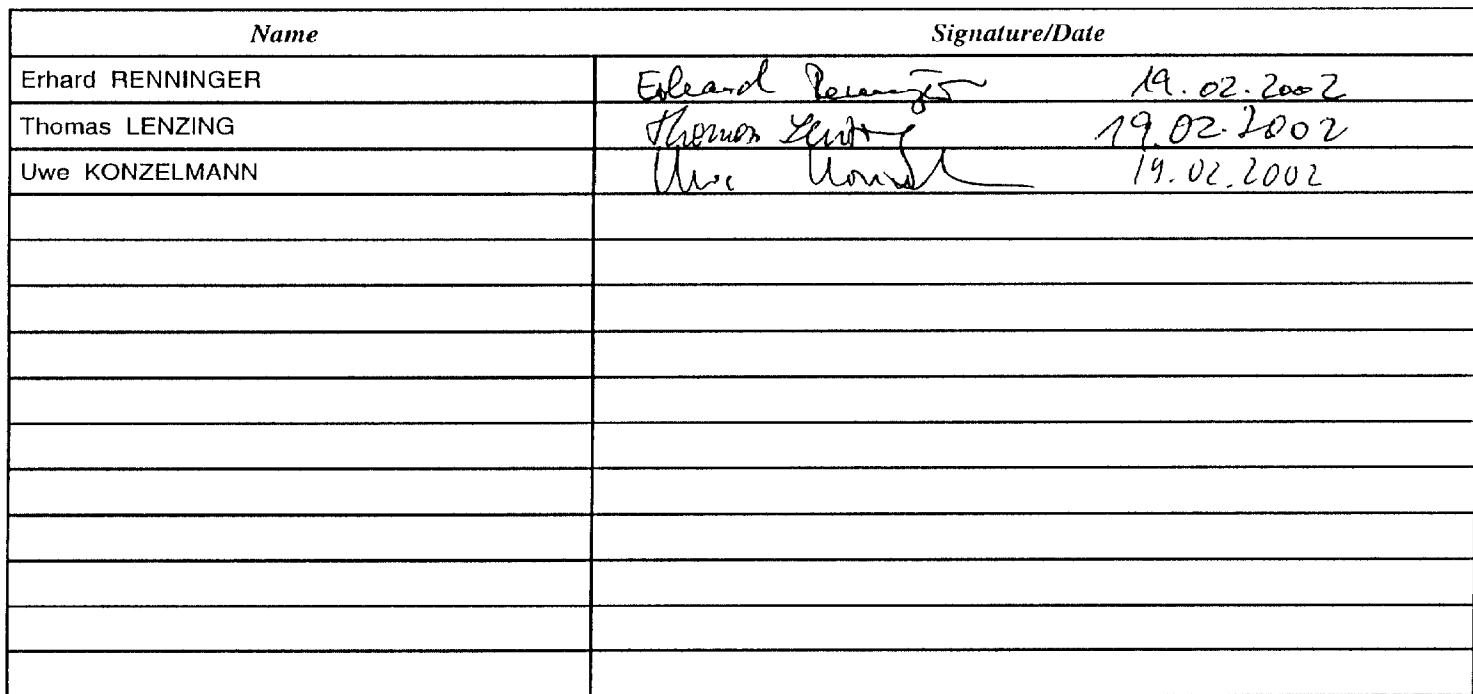 Name Signature/Date
Erhard RENNINGER Erhard Renninger 19.02.2002
Thomas LENZING Thomas Lenzing 19.02.2002
Uwe KONZELMANN Uwe Konzelmann 19.02.2002